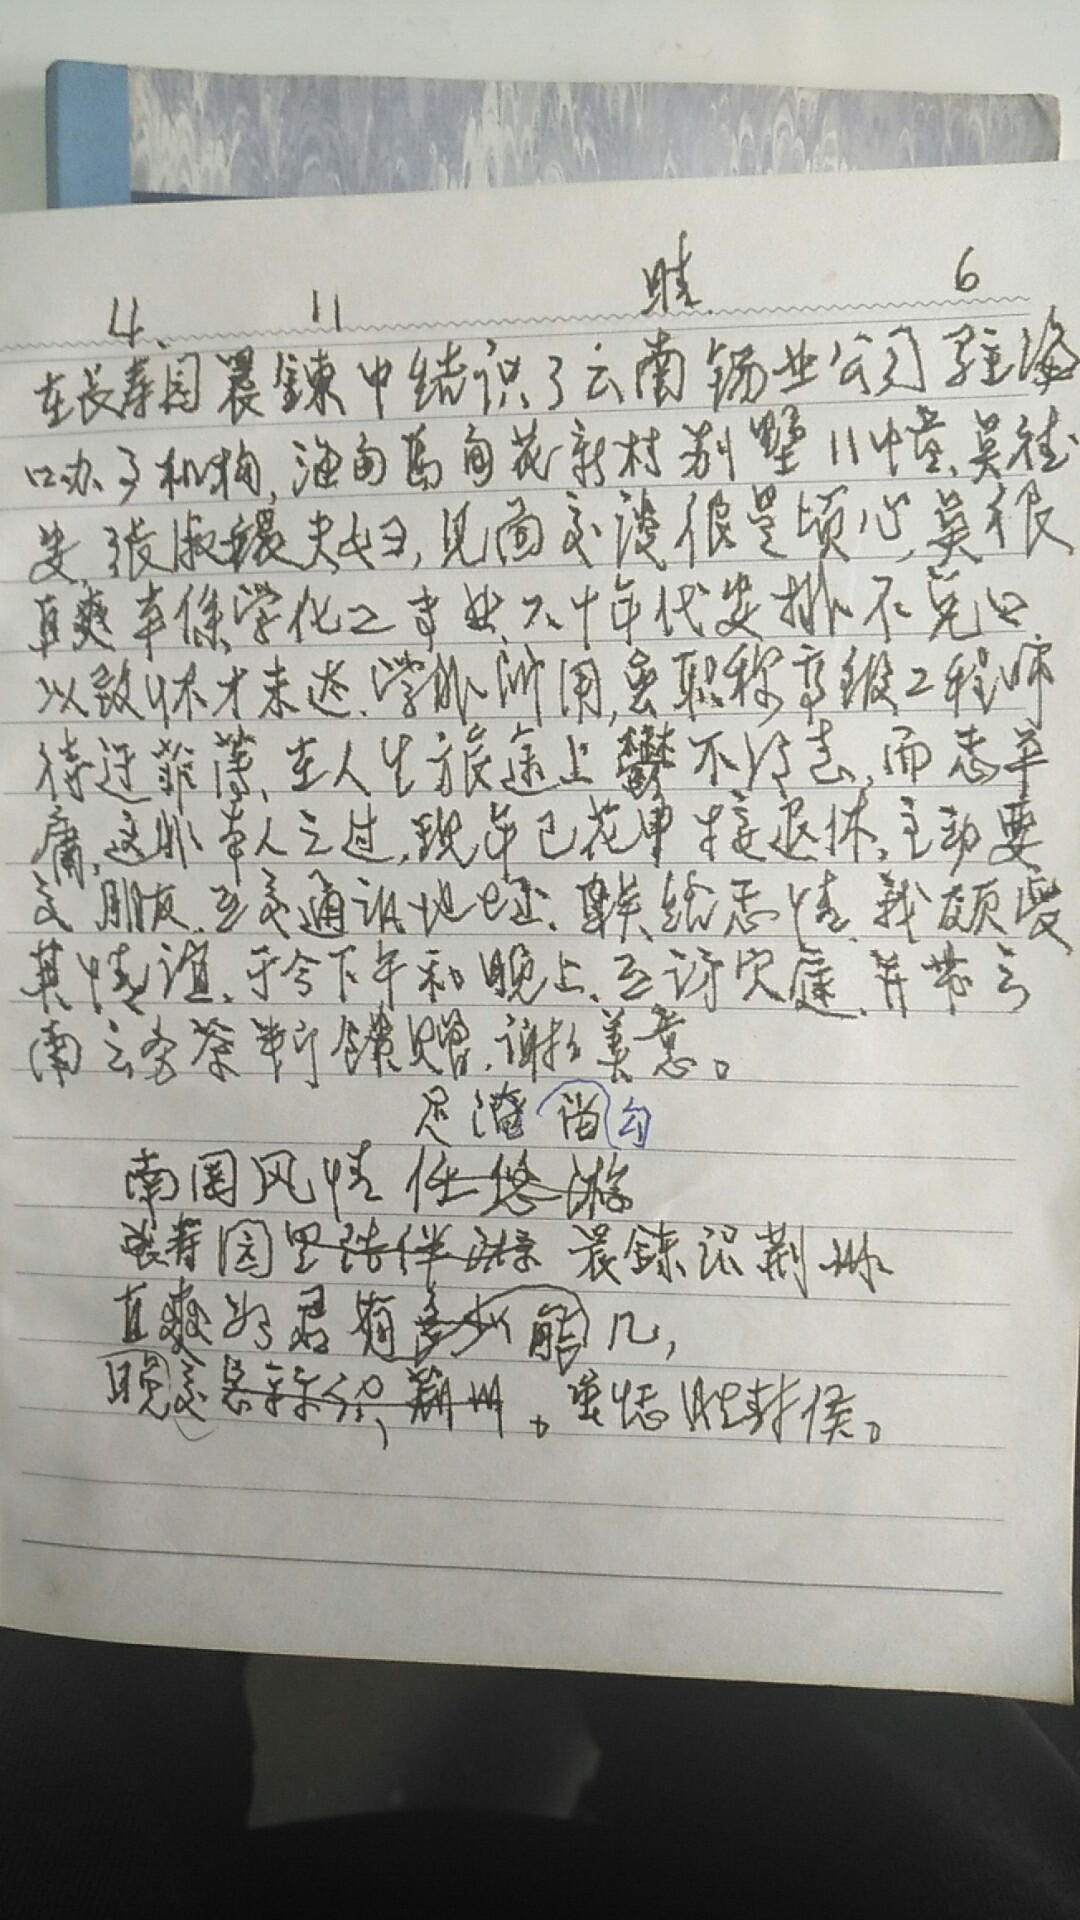 4. 11 晴 6
在长寿园晨鍊中结识了云南锡业公司驻海
口办了机构，海甸岛甸花新村别墅11幢，吴
安，张淑 夫妇，见面交谈很是倾心，吴很
直爽本係学化工专业，六十年代安排不兑口
以致怀才未达，学非所用，虽职称高级工程师
待迂菲薄，在人生旅途上鬱不得志，而志平
庸，这非本人之过，现年已花甲 接退休，主动要
交朋友，互交通讯地址，联络志情，我颇受
其情谊，于今下午和晚上，互访穴庭，并带云
南云雾茶 饋赠，谢 美意。
足 留 勾
南国风情任悠游
长寿园里结伴游 晨鍊识荆州
直爽如君有多少能几，
晚交 荆州。 胜封侯。